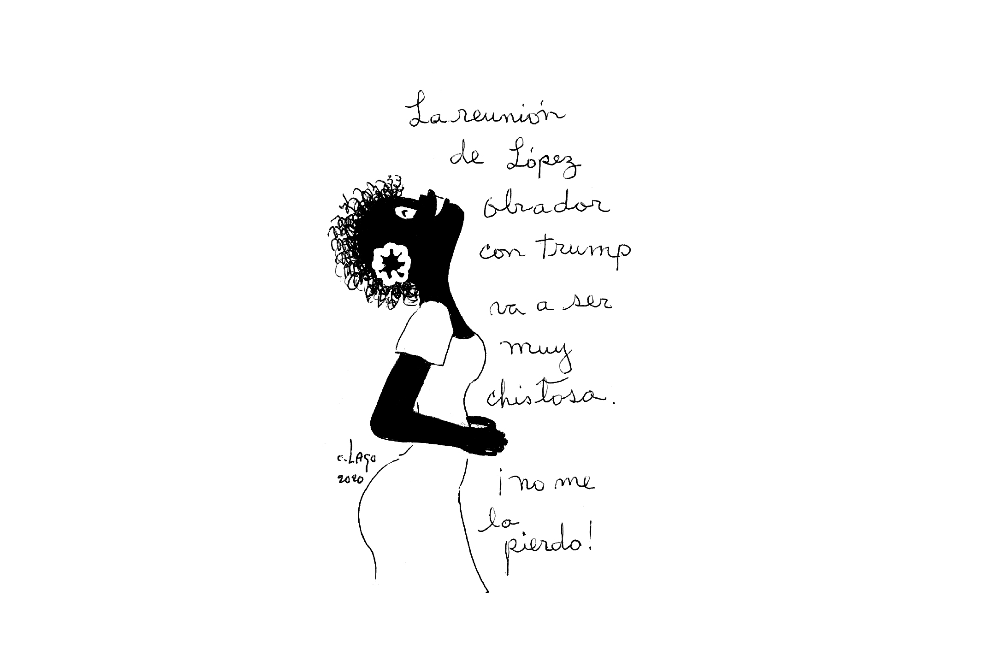 La reunión
de López
obrador
con trump
va a ser
muy
chistosa.
¡no me
la
pierdo!
c. LAgo
2020